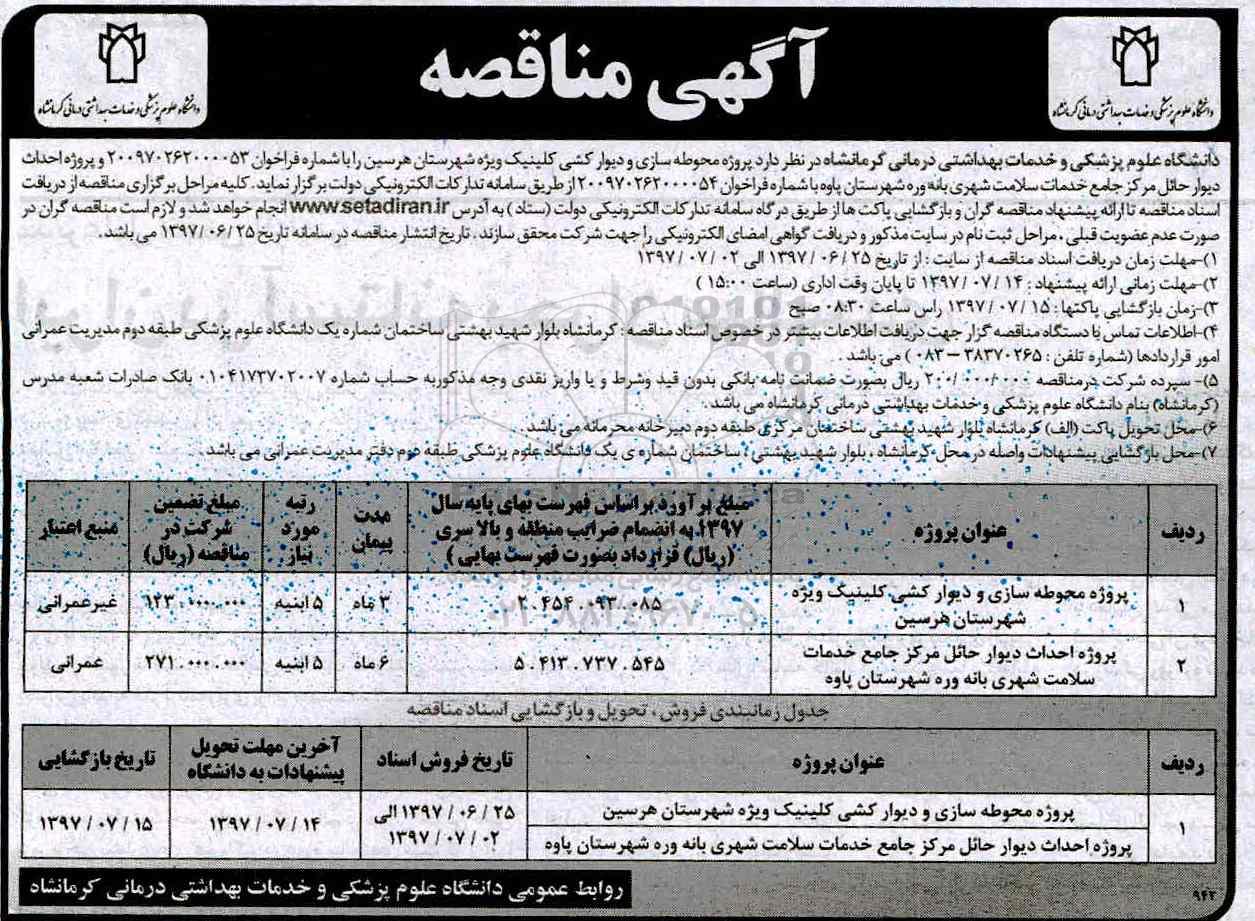 آگهی مناقصه
دانشگاه علوم پزشکی و خدمات بهداشتی درمانی کرمانشاه
دانشگاه علوم پزشکی و خدمات بهداشتی درمانی کرمانشاه
دانشگاه علوم پزشکی و خدمات بهداشتی درمانی کرمانشاه در نظر دارد پروژه محوطه سازی و دیوار کشی کلینیک ویژه شهرستان هرسین را با شماره فراخوان ۲۰۰۹۷۰۲۶۲۰۰۰۰۵۳ و پروژه احداث
دیوار حائل مرکز جامع خدمات سلامت شهری بانه وره شهرستان پاوه با شماره فراخوان ۲۰۰۹۷۰۲۶۲۰۰۰۰۵۴ از طریق سامانه تدارکات الکترونیکی دولت برگزار نماید. کلیه مراحل برگزاری مناقصه از دریافت
اسناد مناقصه تا ارائه پیشنهاد مناقصه گران و بازگشایی پاکت ها از طریق درگاه سامانه تدارکات الکترونیکی دولت (ستاد) به آدرس www.setadiran.ir انجام خواهد شد و لازم است مناقصه گران در
صورت عدم عضویت قبلی، مراحل ثبت نام در سایت مذکور و دریافت گواهی امضای الکترونیکی را جهت شرکت محقق سازند. تاریخ انتشار مناقصه در سامانه تاریخ ۱۳۹۷/۰۶/۲۵ می باشد.
۱)-مهلت زمان دریافت اسناد مناقصه از سایت: از تاریخ ۱۳۹۷/۰۶/۲۵ الی ۱۳۹۷/۰۷/۰۲
۲)-مهلت زمانی ارائه پیشنهاد: ۱۳۹۷/۰۷/۱۴ تا پایان وقت اداری (ساعت ۱۵:۰۰)
۳)-زمان بازگشایی پاکتها: ۱۳۹۷/۰۷/۱۵ راس ساعت ۰۸:۳۰ صبح
۴)-اطلاعات تماس با دستگاه مناقصه گزار جهت دریافت اطلاعات بیشتر در خصوص اسناد مناقصه: کرمانشاه بلوار شهید بهشتی ساختمان شماره یک دانشگاه علوم پزشکی طبقه دوم مدیریت عمرانی
امور قراردادها (شماره تلفن: ۳۸۳۷۰۲۶۵ – ۰۸۳) می باشد.
۵)- سپرده شرکت در مناقصه ۲۰۰/۰۰۰/۰۰۰ ریال بصورت ضمانت نامه بانکی بدون قید وشرط و یا واریز نقدی وجه مذکور به حساب شماره ۰۱۰۴۱۷۳۷۰۲۰۰۷ بانک صادرات شعبه مدرس
(کرمانشاه) بنام دانشگاه علوم پزشکی و خدمات بهداشتی درمانی کرمانشاه می باشد.
۶)-محل تحویل پاکت (الف) کرمانشاه بلوار شهید بهشتی ساختمان مرکزی طبقه دوم دبیرخانه محرمانه می باشد.
۷)-محل بازگشایی پیشنهادات واصله در محل کرمانشاه، بلوار شهید بهشتی، ساختمان شماره ی یک دانشگاه علوم پزشکی طبقه دوم دفتر مدیریت عمرانی می باشد.
ردیف عنوان پروژه مبلغ برآورد براساس فهرست بهای پایه سال ۱۳۹۷ به انضمام ضرایب منطقه و بالا سری (ریال) قرارداد بصورت فهرست بهایی) مدت پیمان رتبه مورد نیاز مبلغ تضمین شرکت در مناقصه (ریال) منبع اعتبار
۱ پروژه محوطه سازی و دیوار کشی کلینیک ویژه شهرستان هرسین ۲.۴۵۴.۰۹۳.۰۸۵ ۳ ماه ۵ ابنیه ۱۲۳.۰۰۰.۰۰۰ غیرعمرانی
۲ پروژه احداث دیوار حائل مرکز جامع خدمات سلامت شهری بانه وره شهرستان پاوه ۵.۴۱۳.۷۳۷.۵۴۵ ۶ ماه ۵ ابنیه ۲۷۱.۰۰۰.۰۰۰ عمرانی
جدول زمانبندی فروش، تحویل و بازگشایی اسناد مناقصه
ردیف عنوان پروژه تاریخ فروش اسناد آخرین مهلت تحویل پیشنهادات به دانشگاه تاریخ بازگشایی
۱ پروژه محوطه سازی و دیوار کشی کلینیک ویژه شهرستان هرسین ۱۳۹۷/۰۶/۲۵ الی ۱۳۹۷/۰۷/۰۲ ۱۳۹۷/۰۷/۱۴ ۱۳۹۷/۰۷/۱۵
پروژه احداث دیوار حائل مرکز جامع خدمات سلامت شهری بانه وره شهرستان پاوه
روابط عمومی دانشگاه علوم پزشکی و خدمات بهداشتی درمانی کرمانشاه
۹۴۳